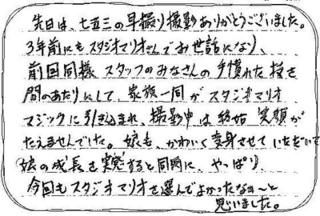 先日は、七五三の早撮り撮影ありがとうございました。
3年前にもスタジオマリオさんでお世話になり、
前回同様スタッフのみなさんの手慣れた技を
間のあたりにして、家族一同がスタジオマリオ
マジックに引き込まれ、撮影中は終始笑顔が
たえませんでした。娘も、かわいく変身させていただいて
娘の成長を実感すると同時に、やっぱり
今回もスタジオマリオを選んでよかったなぁ～と
思いました。